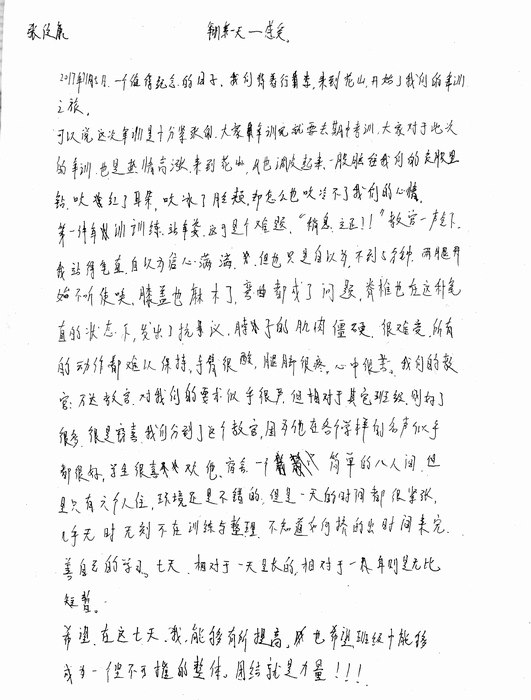 张俊
军训第一天一感受
2017年11月5日.一个值得纪念的日子.我们背着行囊,来到花山,开始了我们的军训
之旅.
可以说这次军训是十分紧张的.大家军训完就要去期中考训.大家对于此次
的军训.也是热情高涨.来到花山,天色调皮起来.一股脑往我们的皮肤里
钻.吹红了耳朵,吹冰了脸颊.却怎么也吹冷不了我们的心情.
第一件军训训练.站军姿.这可是个难题,"稍息.立正!!"教官一声令下.
我站得笔直,自以为信心满满.但也只是自以为.不到5分钟.两腿开
始不听使唤.膝盖也麻木了,弯曲都成了问题,脊椎也在这种笔
直的状态下,发出了抗议.脖子的肌肉僵硬.很难受.所有
的动作都难以保持.手臂很酸,腿脚很疼.心中很苦.我们的教
官:不大教官.对我们的要求似乎很严.但相对于其它班级,则好了
很多.很是惊喜.我们分到了这个教官,因为他在各个学样的名声似乎
都很好,学生很喜欢他.宿舍一个简单的八人间.但
是只有六个人住,环境还是不错的.但是一天的时间都很紧张,
几乎无时无刻不在训练与整理.不知道如何挤的出时间来完
善自己的学习.七天.相对于一天是长的,相对于一年则是无比
短暂。
希望.在这七天.我.能够有所提高,也希望班级能够
成为一个密不可摧的整体。团结就是力量!!!